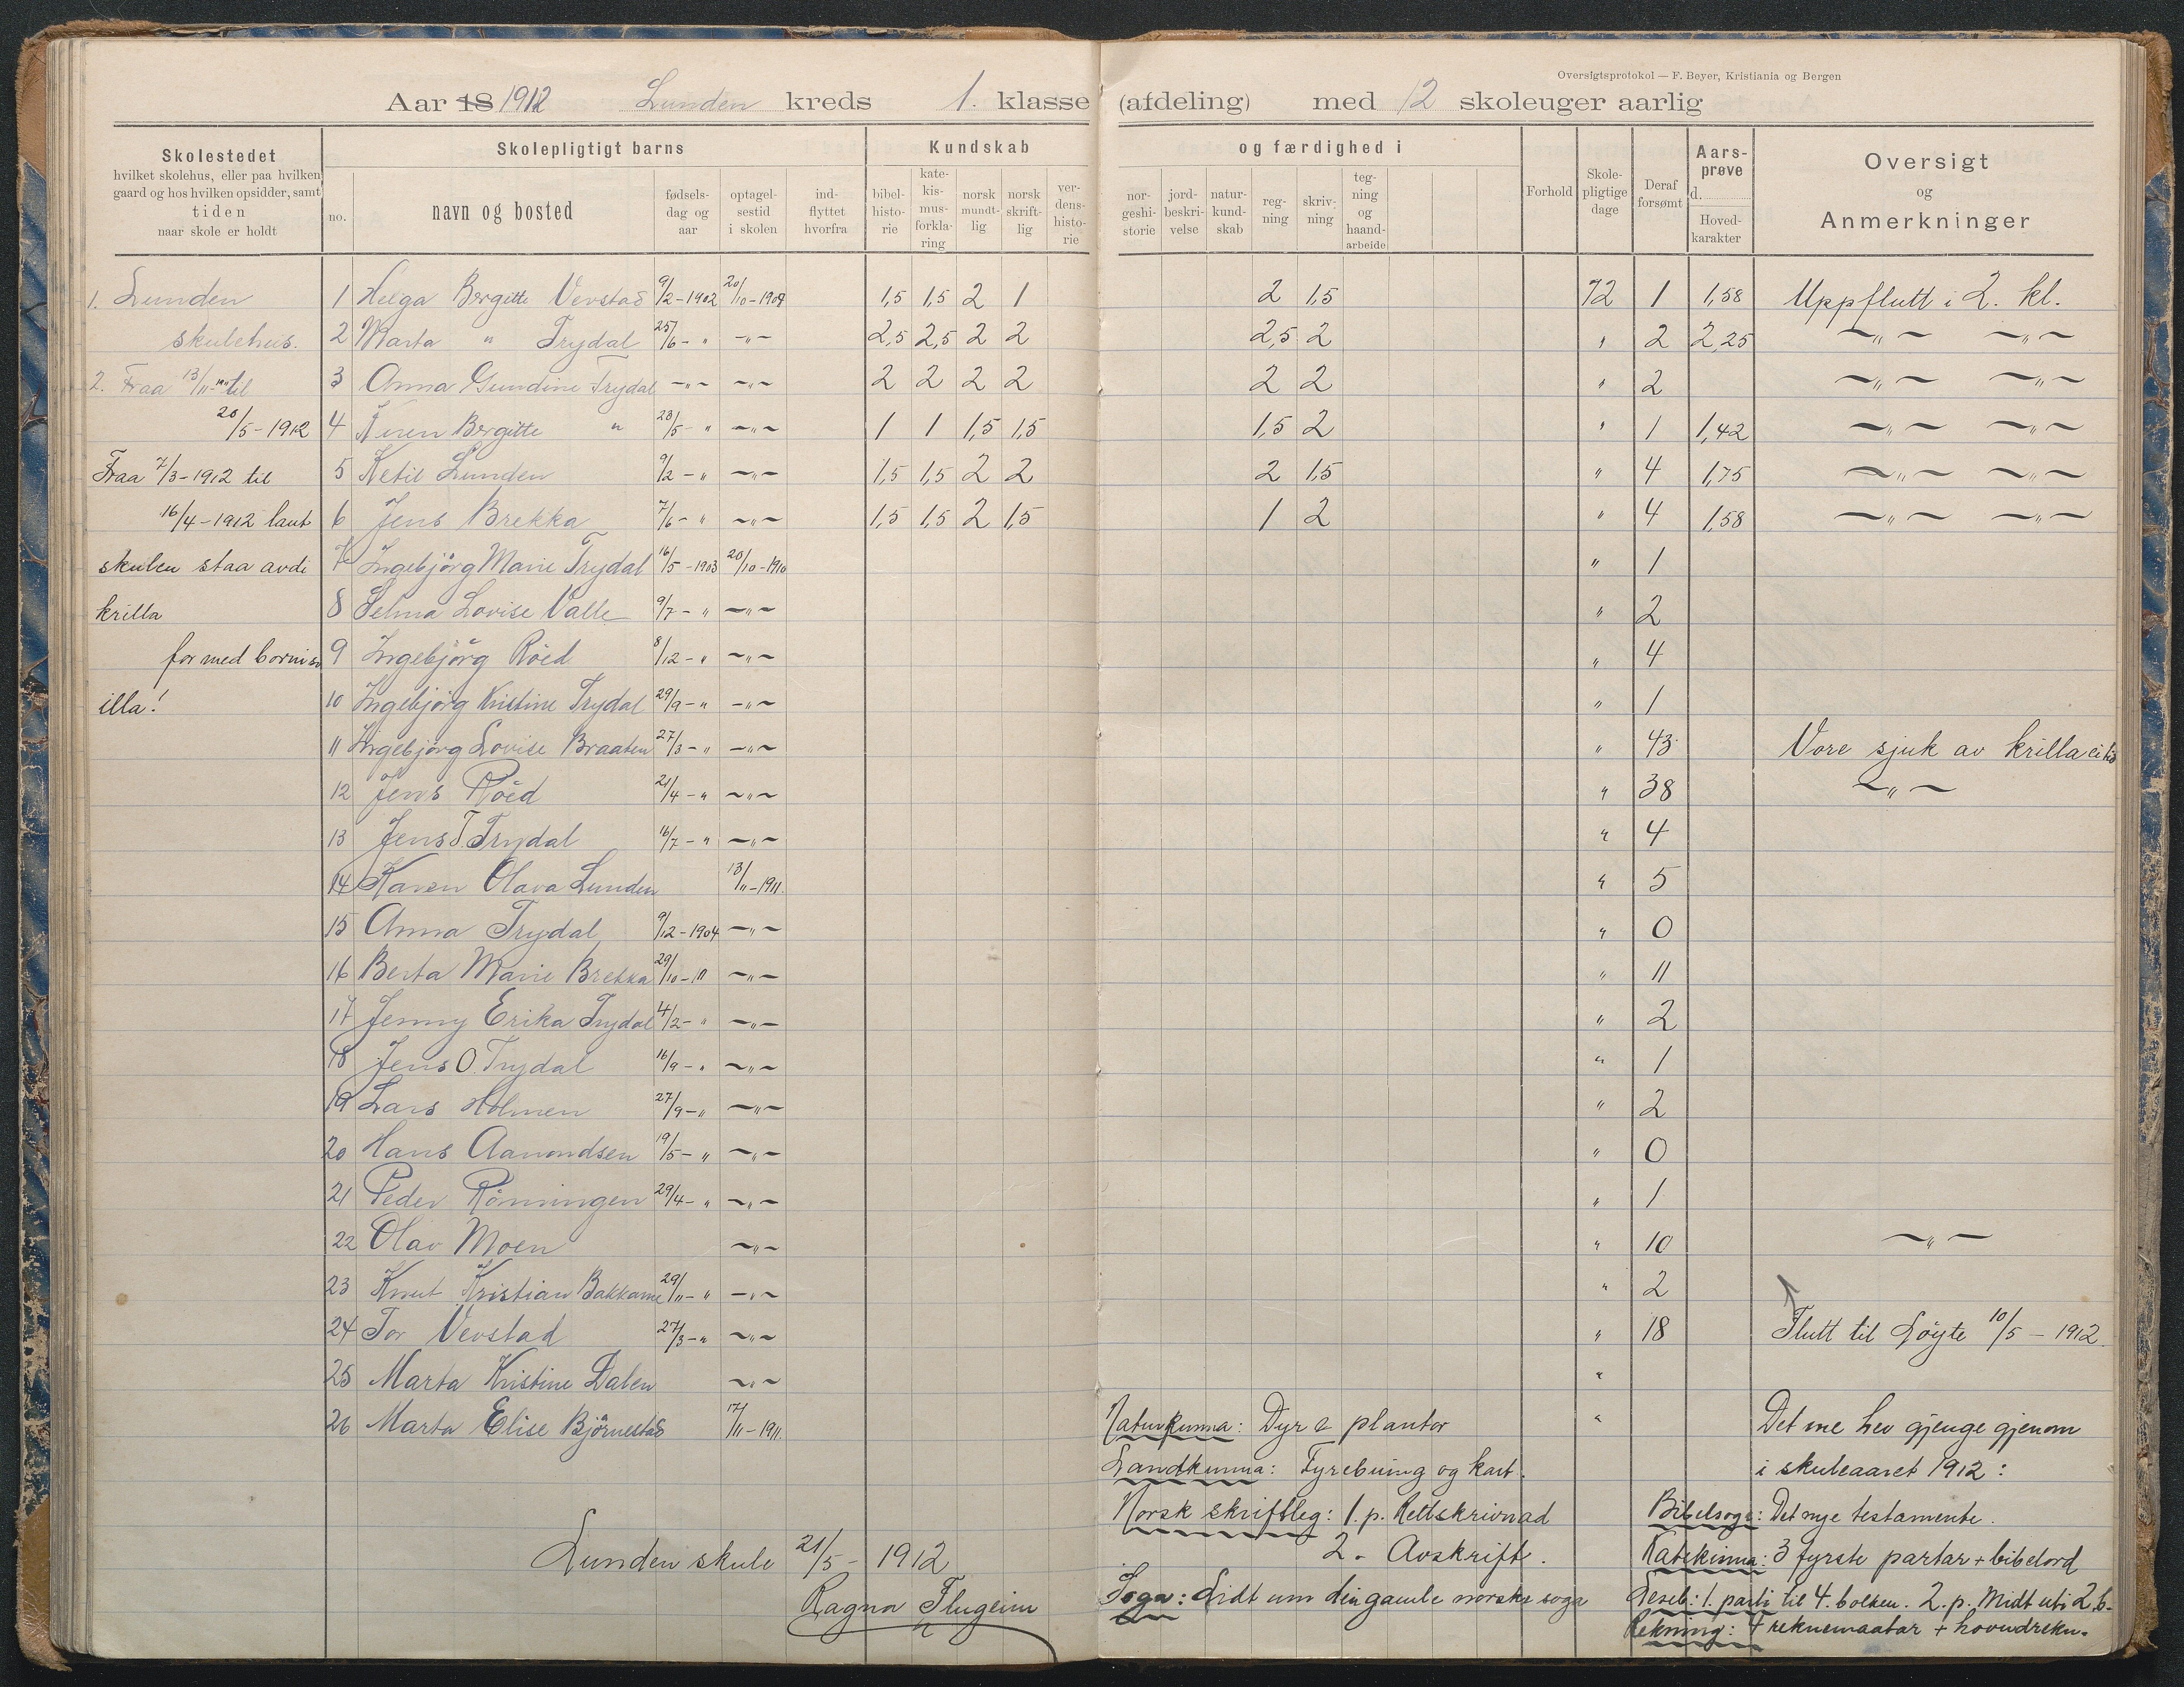 Oversigtsprotokol — F. Beyer, Kristiania og Bergen
Aar 18 1912 Lunden kreds 1. klasse (afdeling) med 12 skoleuger aarlig
Skolestedet
hvilket skolehus, eller paa hvilken
gaard og hos hvilken opsidder, samt
tiden
naar skole er holdt
Skolepligtigt barns
no.
navn og bosted
fødsels-
dag og
aar
optagel-
sestid
i skolen
ind-
flyttet
hvorfra
Kundskab
bibel-
histo-
rie
kate-
kis-
mus-
forkla-
ring
norsk
mundt-
lig
norsk
skrift-
lig
ver-
dens-
histo-
rie
og færdighed i
nor-
geshi-
storie
jord-
beskri-
velse
natur-
kund-
skab
reg-
ning
skriv-
ning
teg-
ning
og
haand-
arbeide
Forhold
Skole-
pligtige
dage
Deraf
forsømt
Aars-
prøve
d.
Hoved-
karakter
Oversigt
og
Anmerkninger
1. Lunden 1 Helga Bergitte Verstad 9/2-1902 20/10-1909 1,5 1,5 2 1 2 1,5 72 1 1,58 Uppflutt i 2. kl.
skulehus. 2 Marta " Trydal 25/6- " -"- 2,5 2,5 2 2 2,5 2 " 2 2,25 -"- -"-
2. Fraa 13/11- til 3 Anna Gundine Trydal -"- -"- 2 2 2 2 2 2 " 2 -"- -"-
20/5-1912 4 Karen Bergitte " 23/5- " -"- 1 1 1,5 1,5 1,5 2 " 1 1,42 -"- -"-
Fraa 7/3-1912 til 5 Ketil Lunden 9/2- " -"- 1,5 1,5 2 2 2 1,5 " 4 1,75 -"- -"-
16/4-1912 laut 6 Jens Brekka 7/6- " -"- 1,5 1,5 2 1,5 1 2 " 4 1,58 -"- -"-
skulen staa avdi 7 Ingebjørg Marie Trydal 16/5-1903 20/10-1910 " 1
krilla 8 Selma Lovise Valle 9/7- " -"- " 2
for med borni so 9 Ingebjørg Röed 8/12- " -"- " 4
illa! 10 Ingebjørg Kristine Trydal 29/9- " -"- " 1
11 Ingebjørg Lovise Braaten 27/3- " -"- " 43 Vore sjuk av krilla ei tid
12 Jens Röed 21/4- " -"- " 38 -"-
13 Jens T. Trydal 16/7- " -"- " 4
14 Karen Olava Lunden 13/11-1911. " 5
15 Anna Trydal 9/12-1904 -"- " 0
16 Berta Marie Brekka 29/10- 11 -"- " 11
17 Jenny Erika Trydal 4/2- " -"- " 2
18 Jens O. Trydal 16/9- " -"- " 1
19 Lars Holmen 27/9- " -"- " 2
20 Hans Aamondsen 19/5- " -"- " 0
21 Peder Rønningen 29/4- " -"- " 1
22 Olav Moen -"- " 10 -"-
23 Knut Kristian Bakkane 29/11- " -"- " 2
24 Tor Verstad 27/3- " -"- " 18 Flutt til Løyte 10/5-1912.
25 Marta Kristine Dalen -"- "
26 Marta Elise Bjørnestad 17/11-1911. "
Naturkunna: Dyr & plantor
Landkunna: Fyrebuing og kart.
Norsk skriftleg: 1. p. Rettskrivnad
2. - Avskrift.
Soga: Lidt um din gamle norske soga
Det me hev gjenge gjenom
i skuleaaret 1912:
Bibelsoge: Det nye testamente.
Katekisma: 3 fyrste partar + bibelord
Leseb: 1. parti til 4. bolken. 2. p. Midt uti 2. b.
Rekning: 4 reknemaatar + hovudrekn.
Lunden skule 21/5-1912
Ragna Flugeim